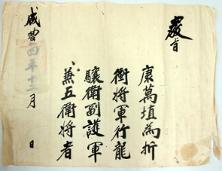 教旨
康萬埴為折
衝將軍行龍
驤衛副護軍
兼五衛將者
咸豊四年十二月 日